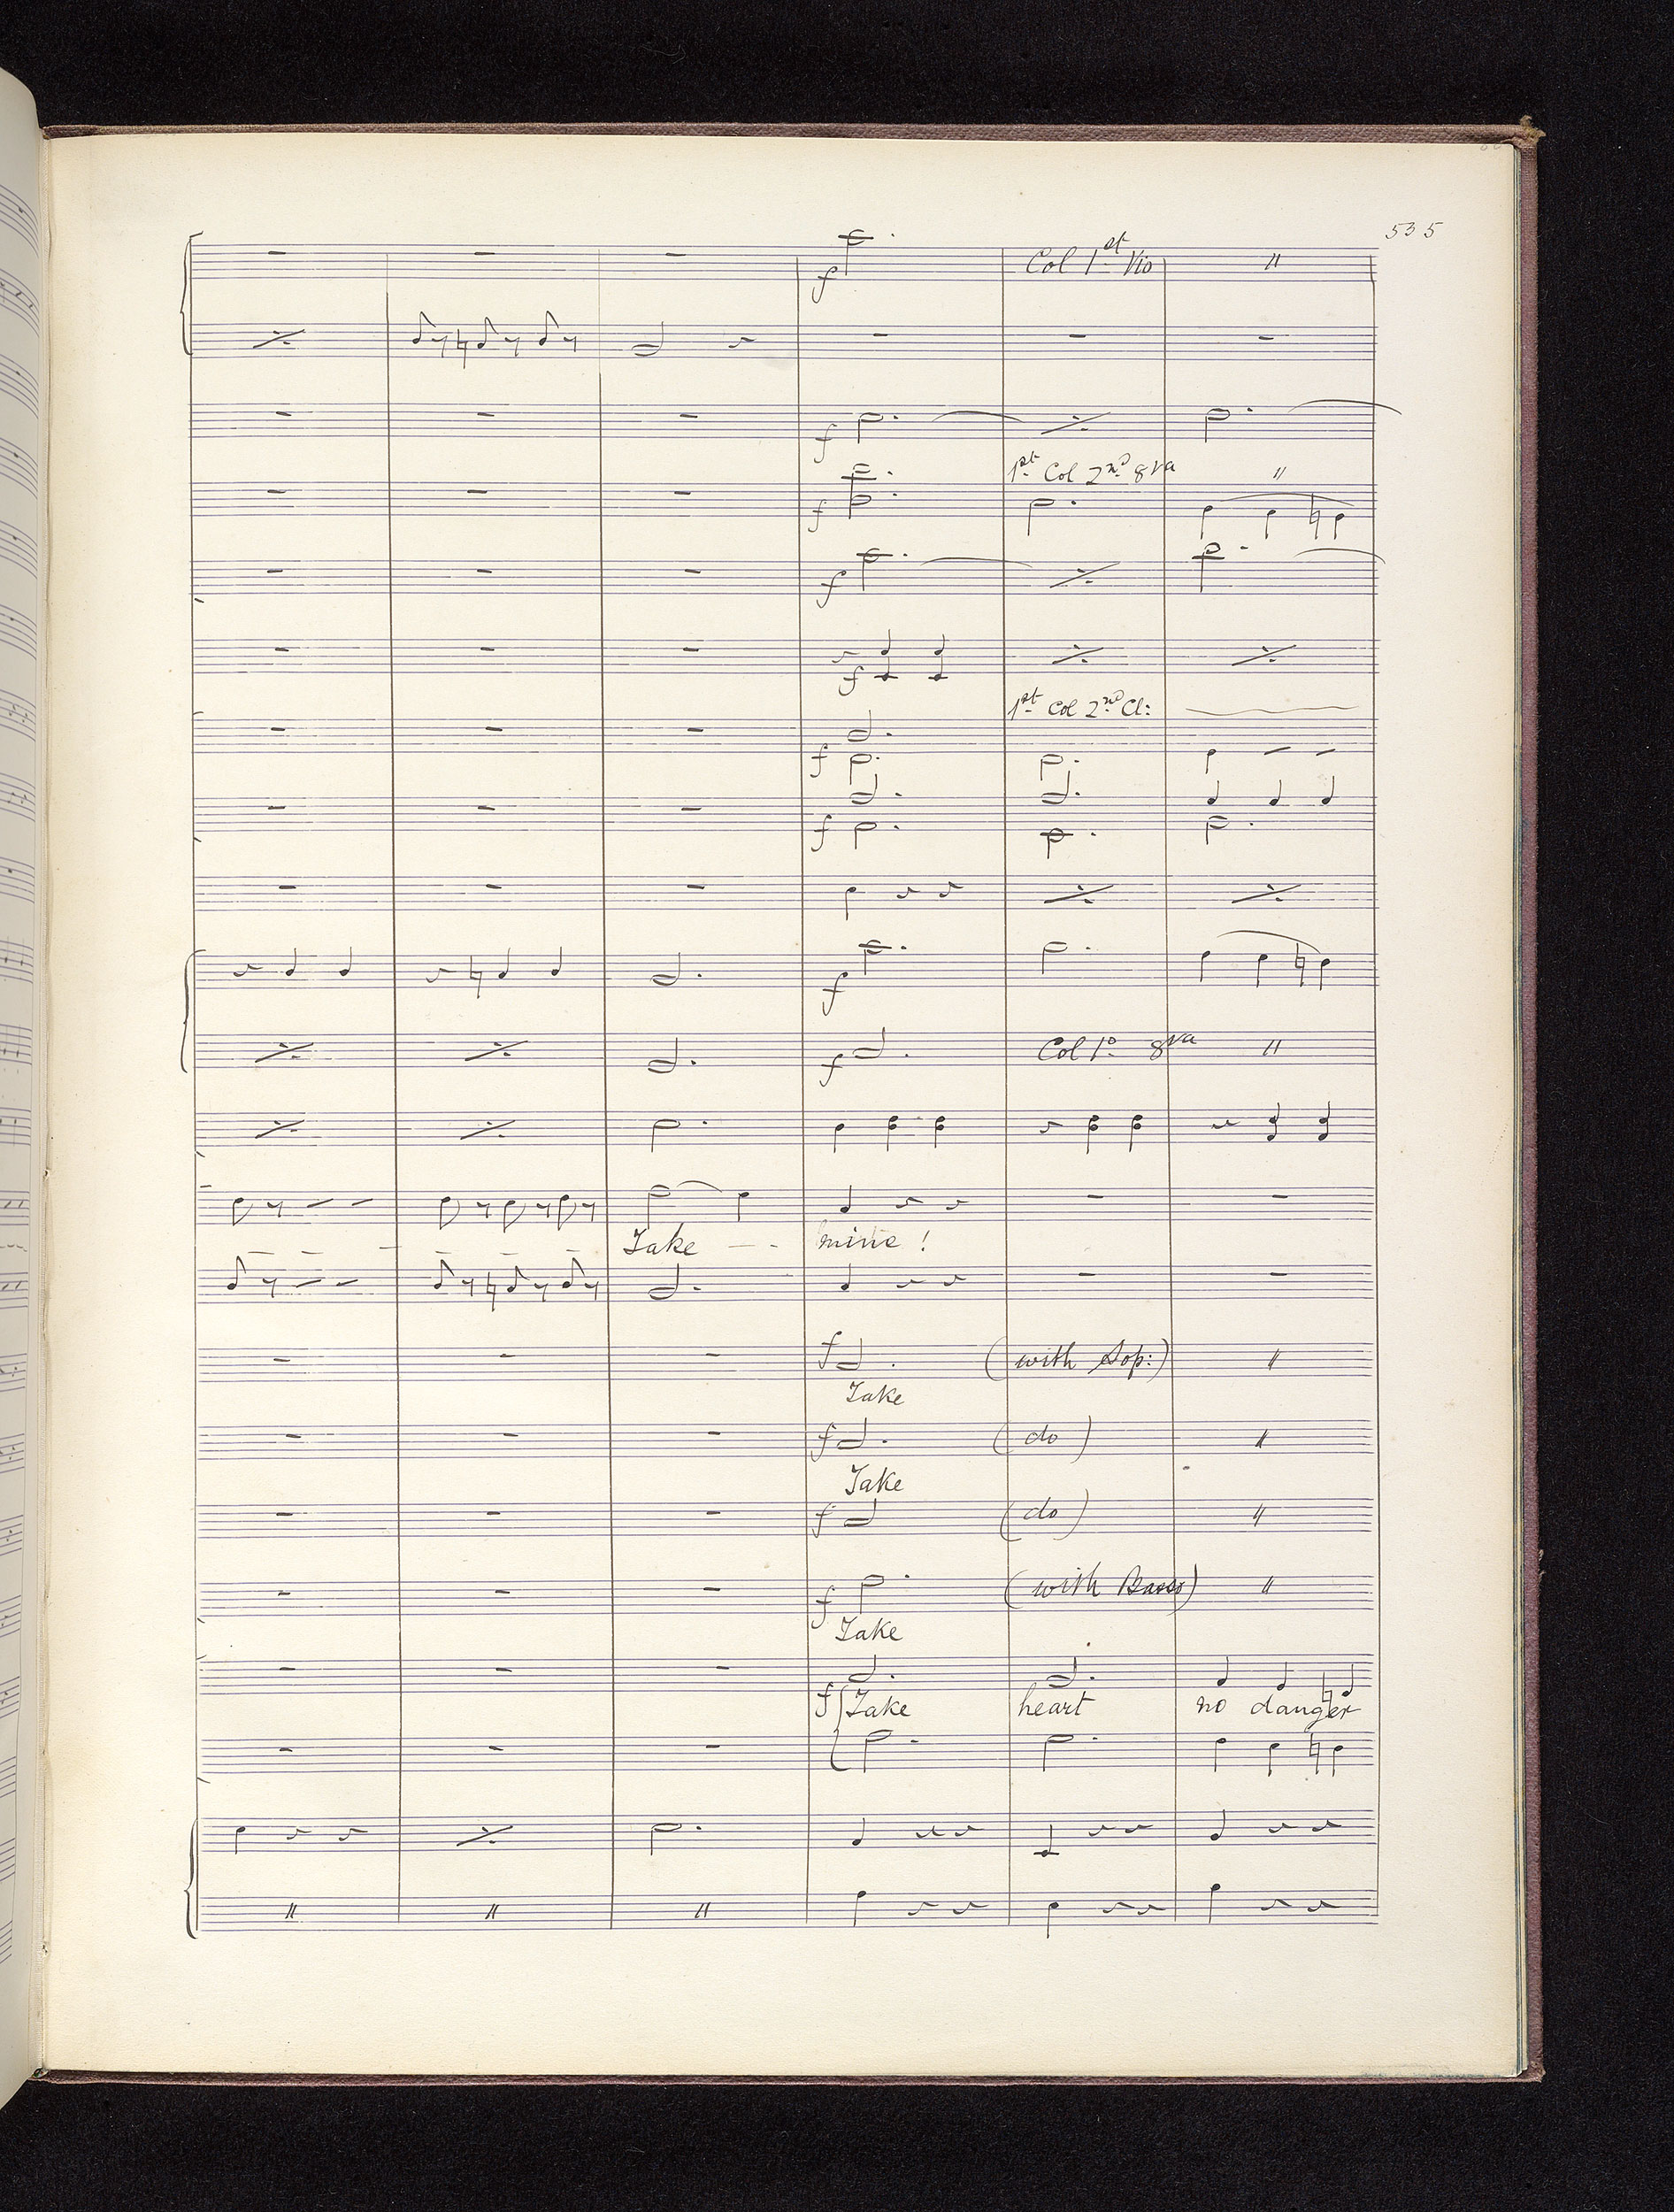 535
f Col 1st Vio "
f
1st Col 2nd 8va "
f
f
f
1st Col 2nd Cl:
f
f
f
f Col 1o 8va "
Take - - mine!
f (with Sop:) "
Take
f (do) "
Take
f (do) "
f (with Basso) "
Take
f Take heart no danger
" " "